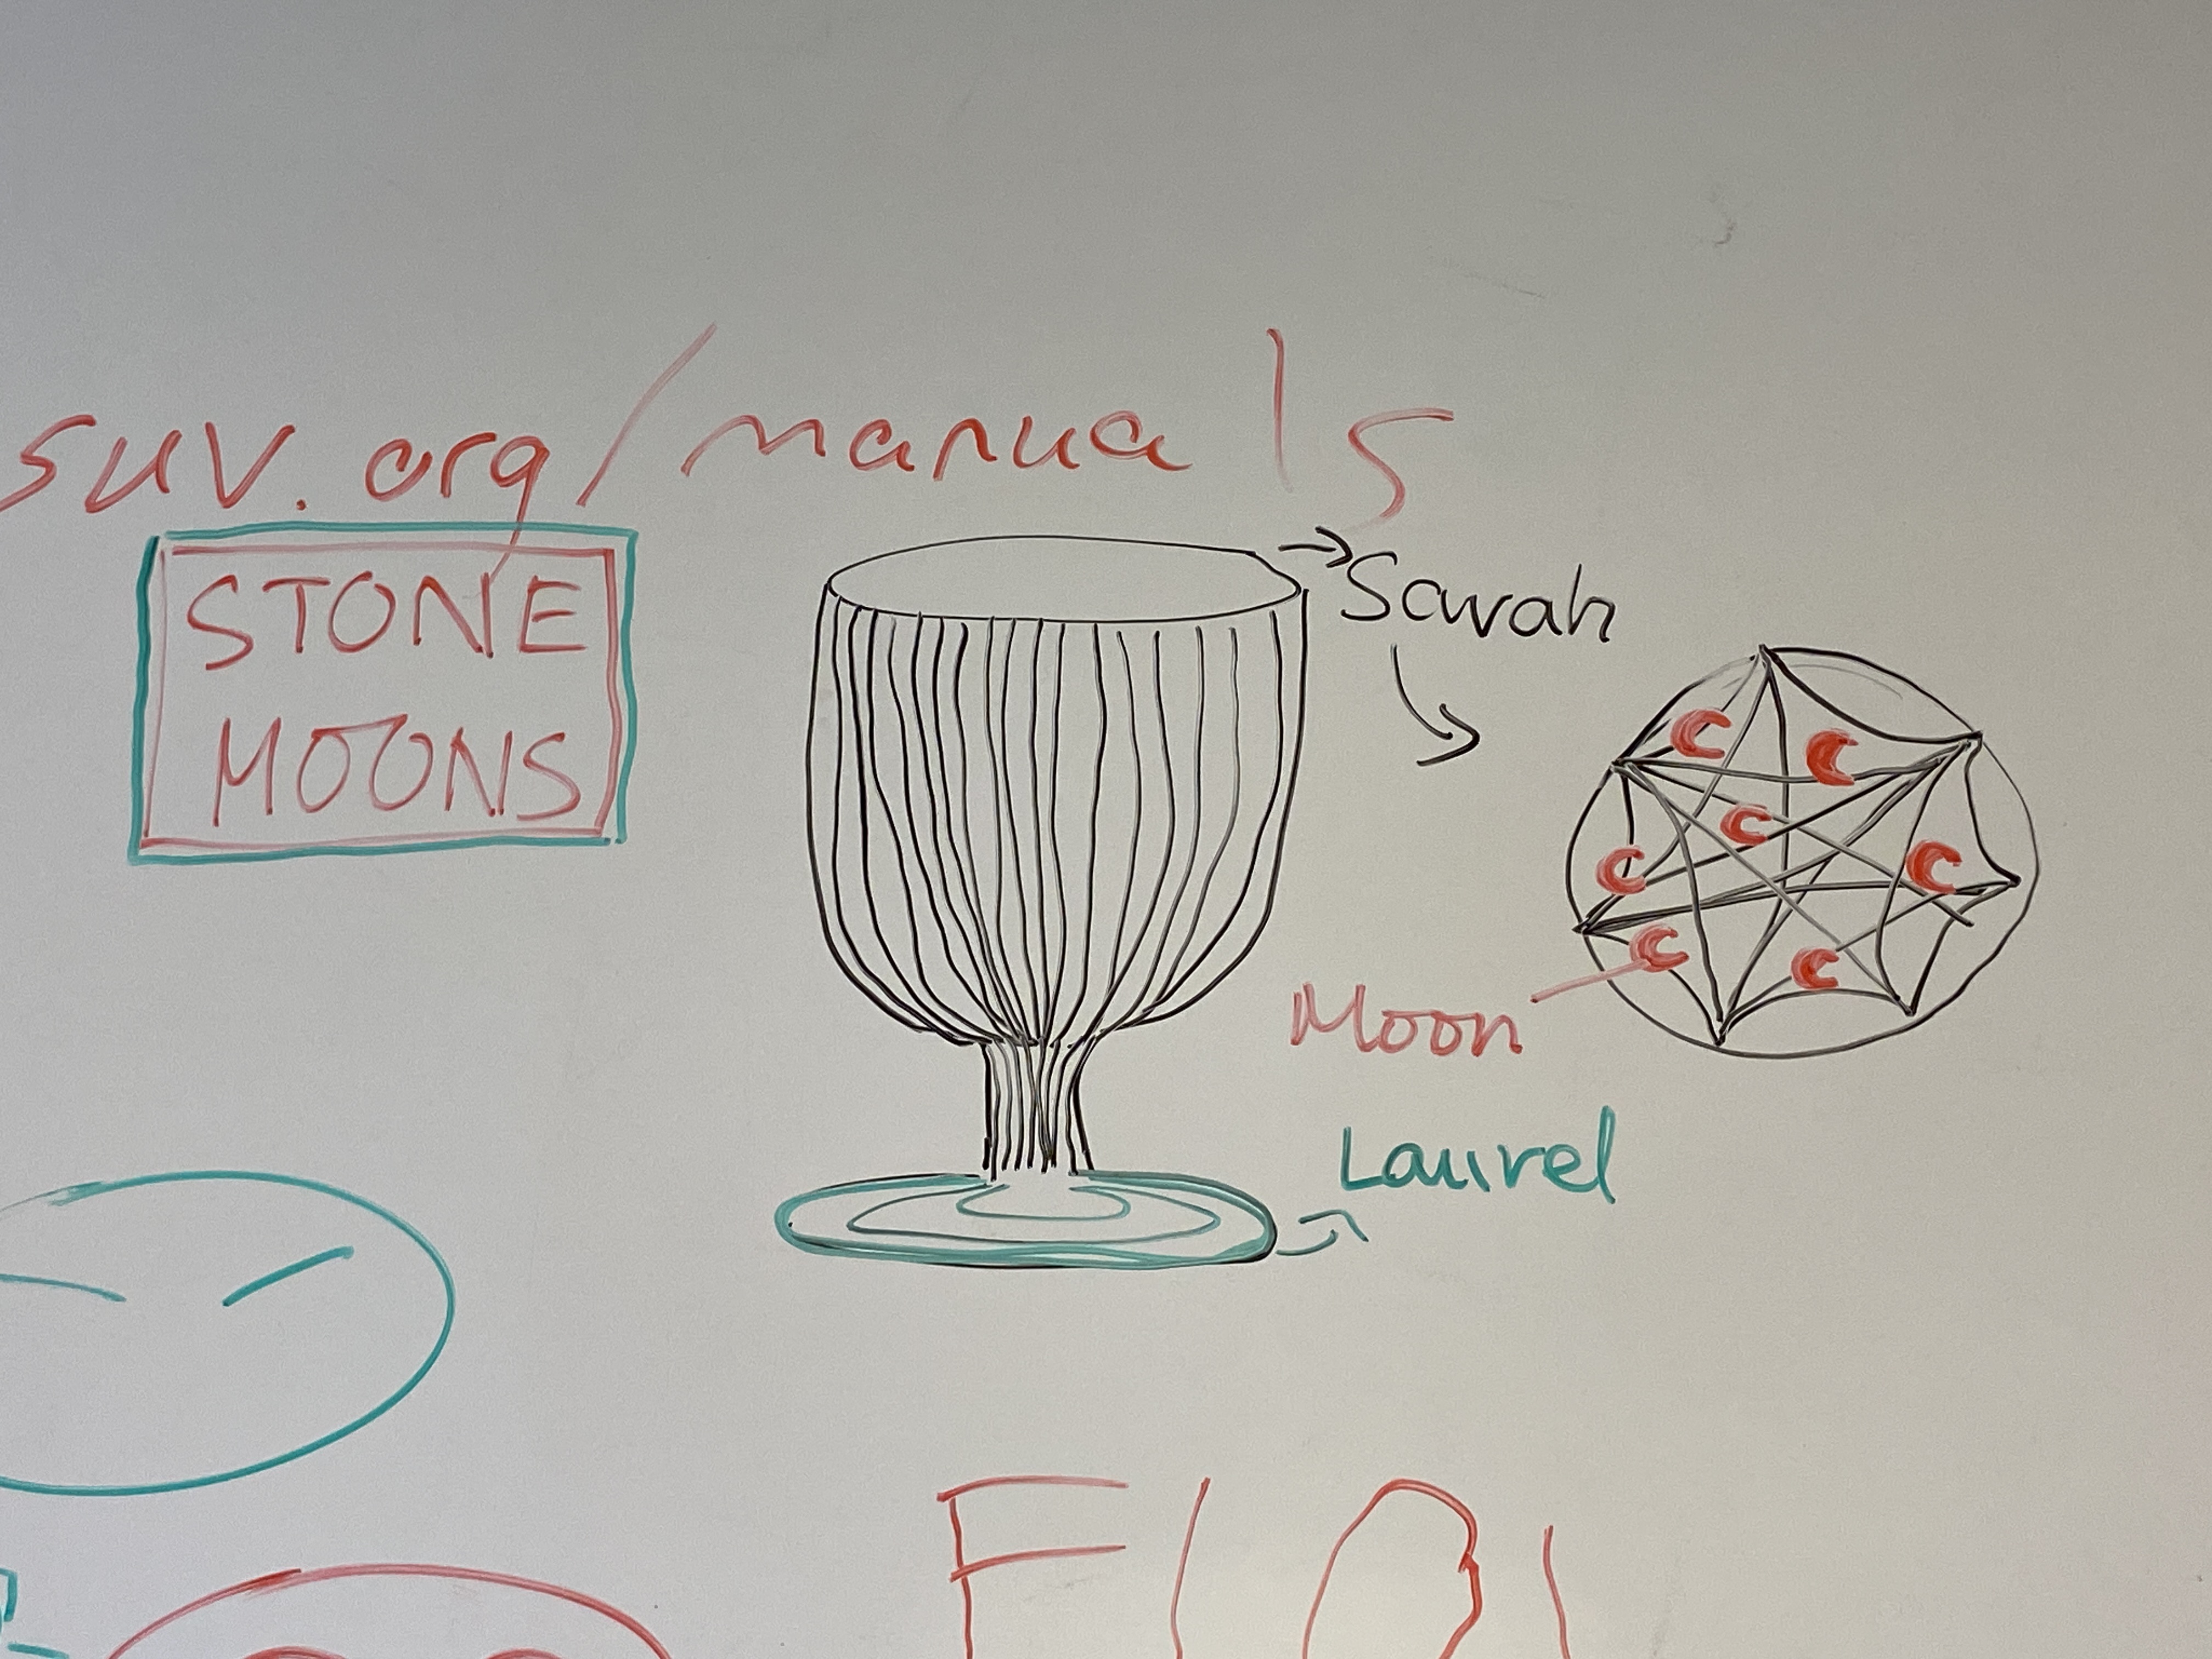 suv.org/manuals
STONE
MOONS
Sarah
Moon
Laurel